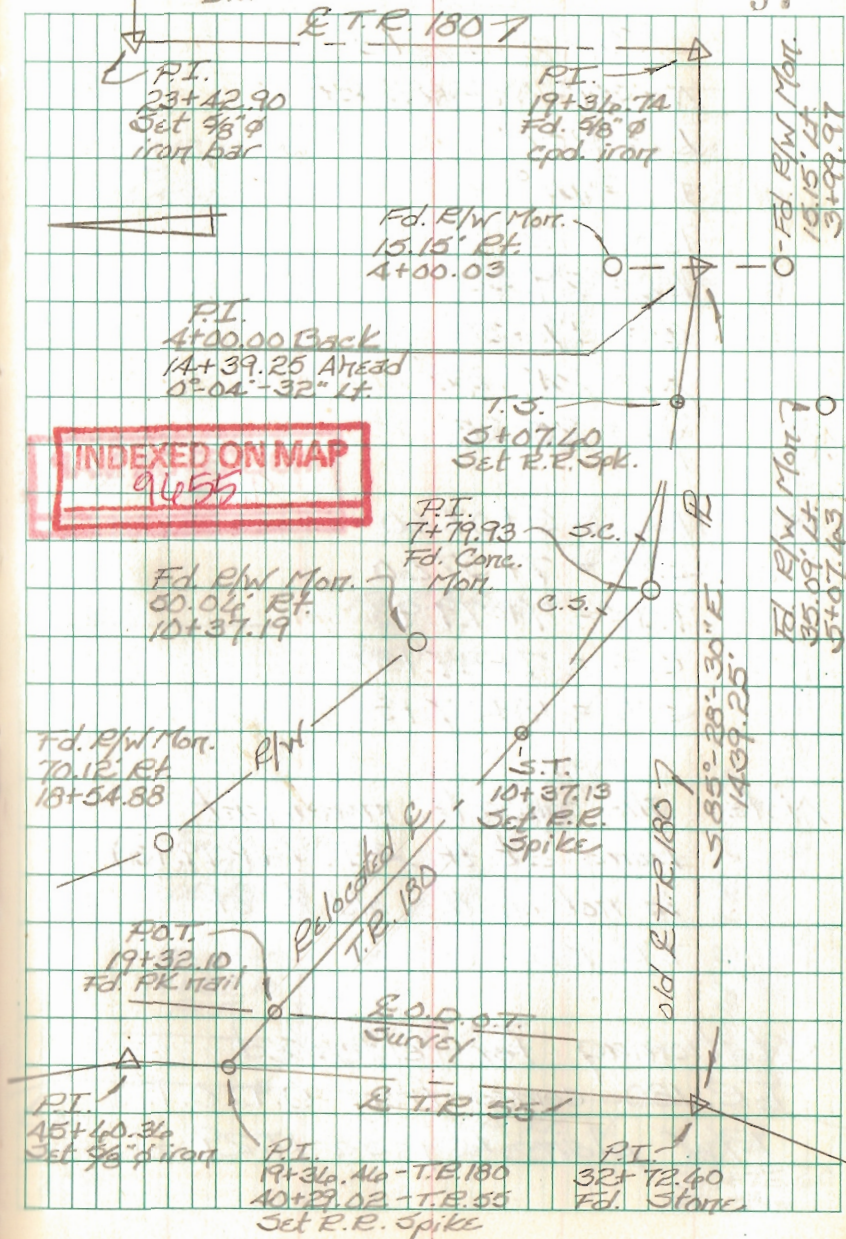 ℄ T.R. 180
P.I.
23+42.90
Set 5/8" ϕ
iron bar
P.I.
19+36.74
Fd. 5/8" ϕ
cpd. iron
Fd. R/W Mon.
15.15' Lt.
3+99.97
Fd. R/W Mon.
15.15' Rt.
4+00.03
P.I.
4+00.00 Back
14+39.25 Ahead
0°-04'-32" Lt.
T.S.
5+07.60
Set R.R. Spk.
INDEXED ON MAP
9655
Fd. R/W Mon.
35.09' Lt.
5+07.63
P.I.
7+79.93
Fd. Conc.
Mon.
S.C.
C.S.
Fd. R/W Mon.
50.06' Rt.
10+37.19
S 85°-28'-30" E.
1439.25'
Fd. R/W Mon.
70.12' Rt.
18+54.88
R/W
S.T.
10+37.13
Set R.R.
Spike
Relocated ℄
T.R. 180
old ℄ T.R. 180
P.O.T.
19+32.10
Fd. PK nail
℄ O.D.O.T.
Survey
℄ T.R. 55
P.I.
45+60.36
Set 5/8" ϕ iron
P.I.
19+36.46 - T.R. 180
40+29.02 - T.R. 55
Set R.R. Spike
P.I.
32+72.60
Fd. Stone